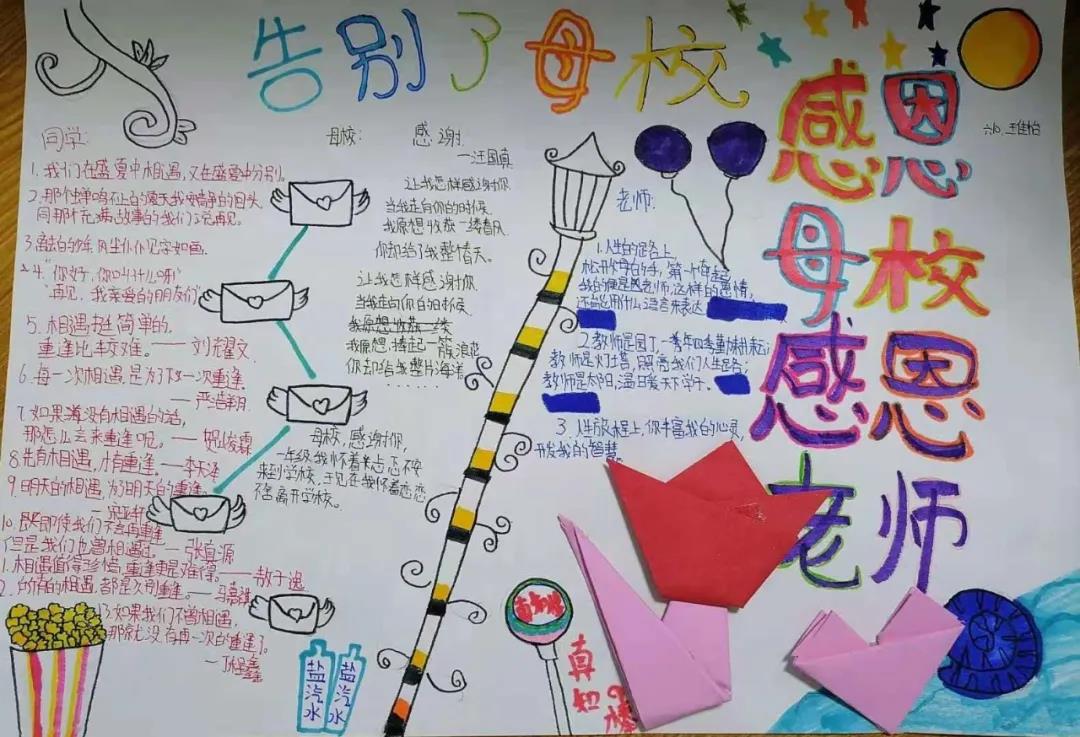 告别了母校
感恩
母校
感恩
老师
同学:
1. 我们在盛夏中相遇,又在盛夏中分别。
2. 那个蝉鸣不止的夏天我安静的回头
同那个充满故事的我们说再见。
4. "你好,你叫什么呀"
"再见,我亲爱的朋友们"
5. 相遇
简单的,
重逢比较难。——刘耀文
6. 每一次相遇,是为了下一次重逢。
——严浩翔
7. 如果道没有相遇的话,
那怎么会来重逢呢,——
8. 先有相遇,才有重逢。——李天泽
9. 明天的相遇,为了明天的重逢。
10. 既即使我们不会再重逢
但是我们也曾相遇过。——张真源
1. 相遇值得珍惜,重逢更是难得。——敖子逸
2. 所有的相遇,都是久别重逢。——马嘉祺
13. 如果我们不曾相遇,
那就没有再一次的重逢了。
——丁程鑫
母校: 感谢
——汪国真
让我怎样感谢你
当我走向你的时候
我原想收获一缕春风
你却给了我整个春天。
让我怎样感谢你
当我走向你的时候
我原想收获一缕
我原想捧起一簇浪花
你却给我整片海洋
......
母校,感谢你,
一年级我怀着忐忑不安
来到小学校,
现在我怀着恋恋
不舍离开学校。
老师:
1. 人生的道路上,
我的便是恩老师,这样的恩情,
还能用什么语言来表达
2. 教师是园丁,一青年四季
教师是灯塔,照亮我们人生道路;
教师是太阳,温暖天下学子。
3. 人生旅程上,你丰富我的心灵,
开发我的智慧。
盐汽水
盐汽水
真知棒
真知棒